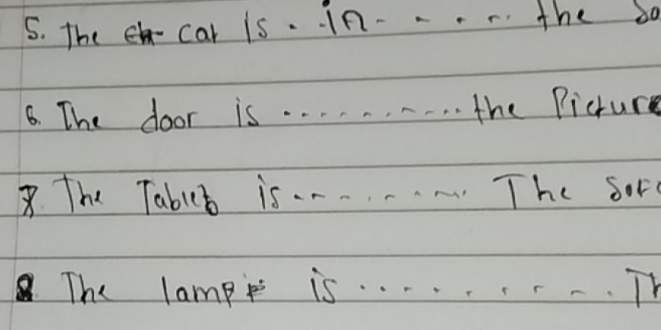 5. The car is . in . . . . . the
6. The door is ........... the Picture
7. The Table is ......... The
8 The lamp is .......... Th